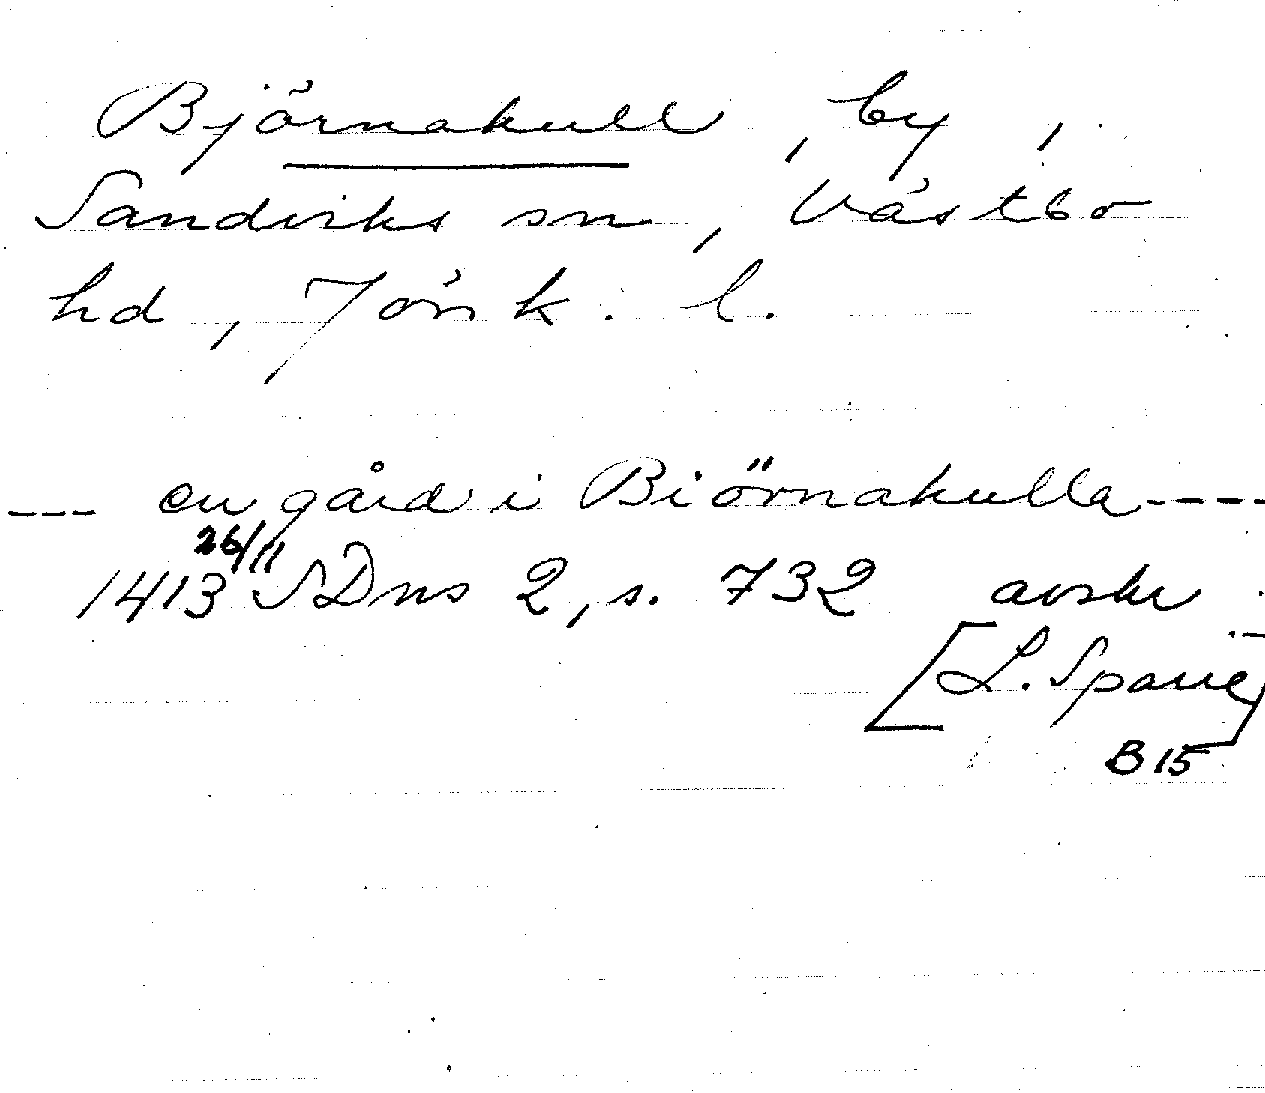 Björnakull, by,
Sandviks sn, Västbo
hd, Jönk. l.
--- en gård i Biörnakulla ----
1413 26/11 SDns 2, s. 732 avskr
[L. Spane]
B 15